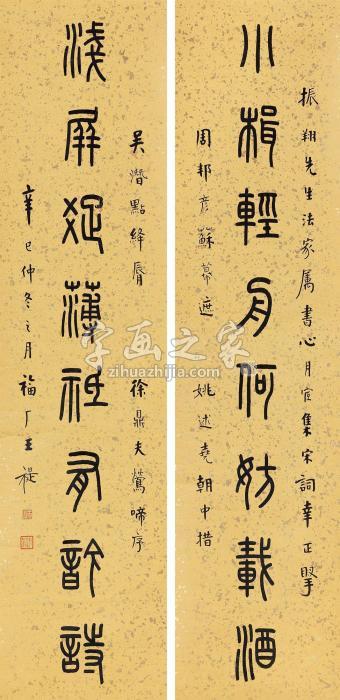 振翔先生法家属書心月宦集宋詞幸正
小楫輕舟何妨載酒
周邦彥蘇幕遮 姚述堯朝中措
吳潛點絳脣 徐鼎夫鶯啼序
淺屏薄祗詩
辛巳仲冬之月福厂王禔
字画之家
zihuazhijia.com